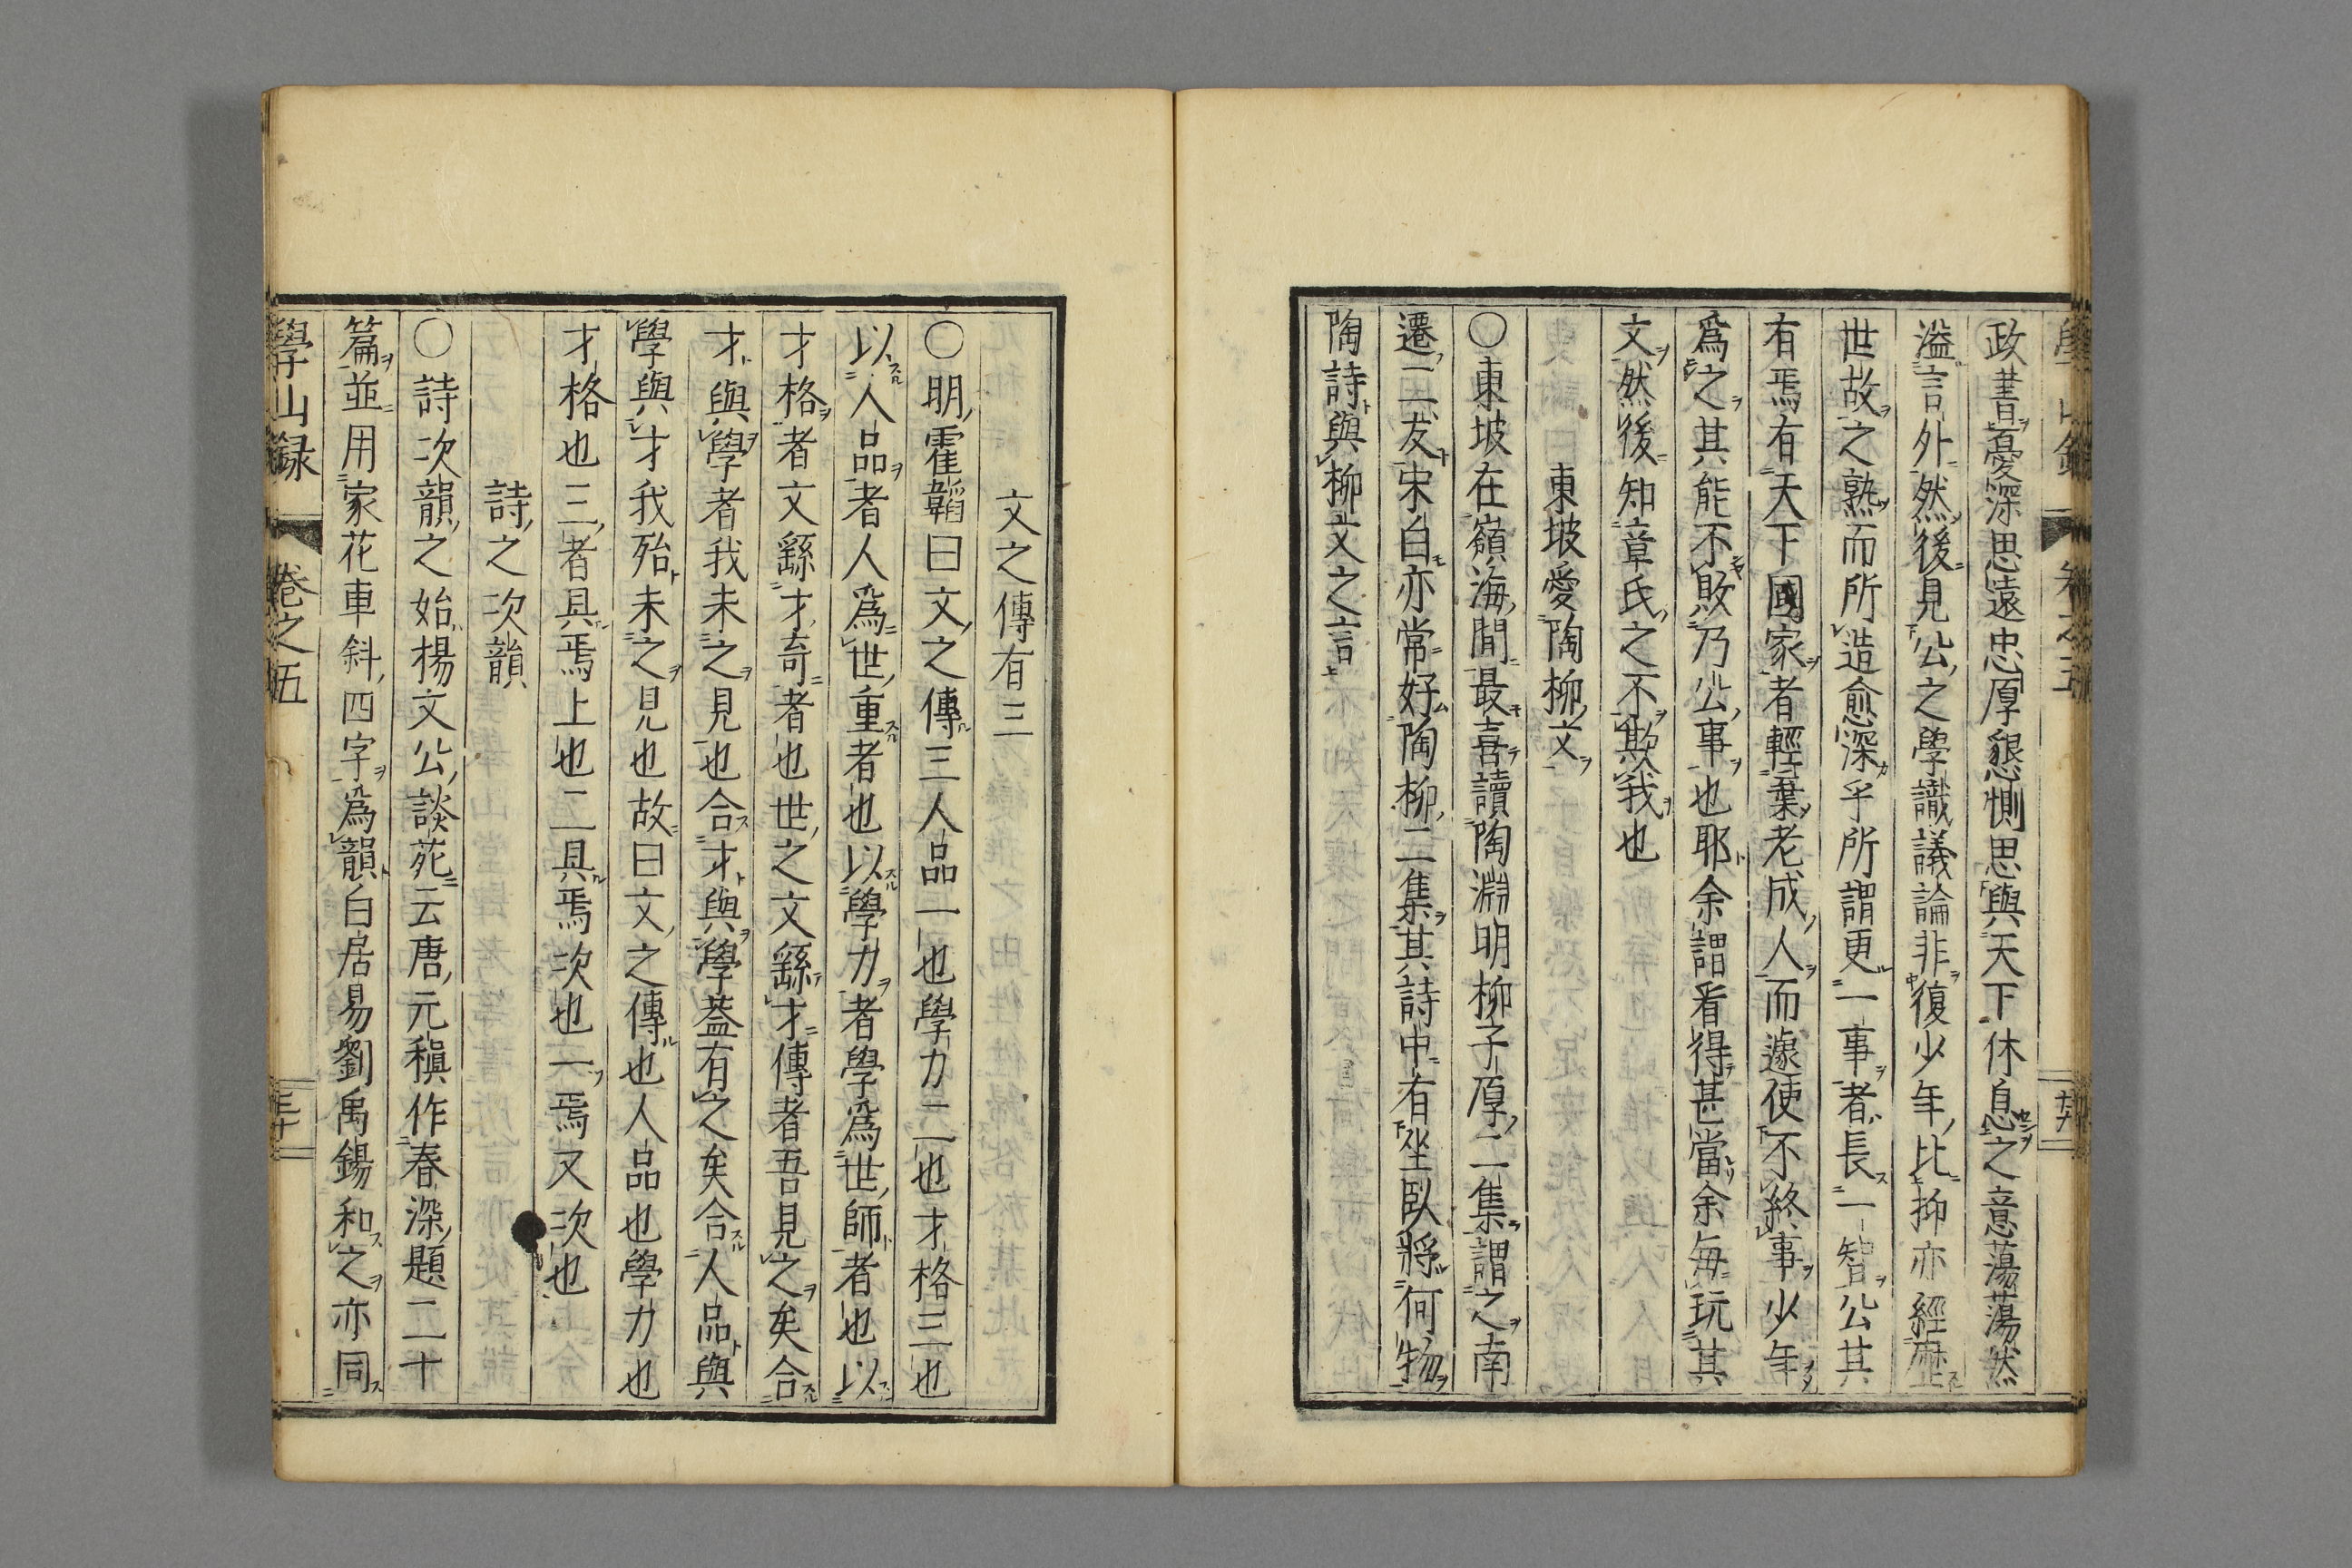 政書憂深思遠忠厚懇惻思與天下休息之意蕩蕩然
溢言外然後見公之學識議論非復少年比抑亦經歷
世故之熟而所造愈深乎所謂更一事者長一智公其
有焉有天下國家者輕棄老成人而遽使不終事少年
爲之其能不敗乃公事也耶余謂看得甚當余每玩其
文然後知章氏之不欺我也
東坡愛陶柳文
○東坡在嶺海間最喜讀陶淵明柳子厚二集謂之南
遷二友宋白亦常好陶柳二集其詩中有坐臥將何物
陶詩與柳文之言
文之傳有三
○明霍韜曰文之傳三人品一也學力二也才格三也
以人品者人爲世重者也以學力者學爲世師者也以
才格者文繇才奇者也世之文繇才傳者吾見之矣合
才與學者我未之見也合才與學葢有之矣合人品與
學與才我殆未之見也故曰文之傳也人品也學力也
才格也三者具焉上也二具焉次也一焉又次也
詩之次韻
○詩次韻之始楊文公談苑云唐元稹作春深題二十
篇並用家花車斜四字爲韻白居易劉禹錫和之亦同
學山録 卷之五 三十